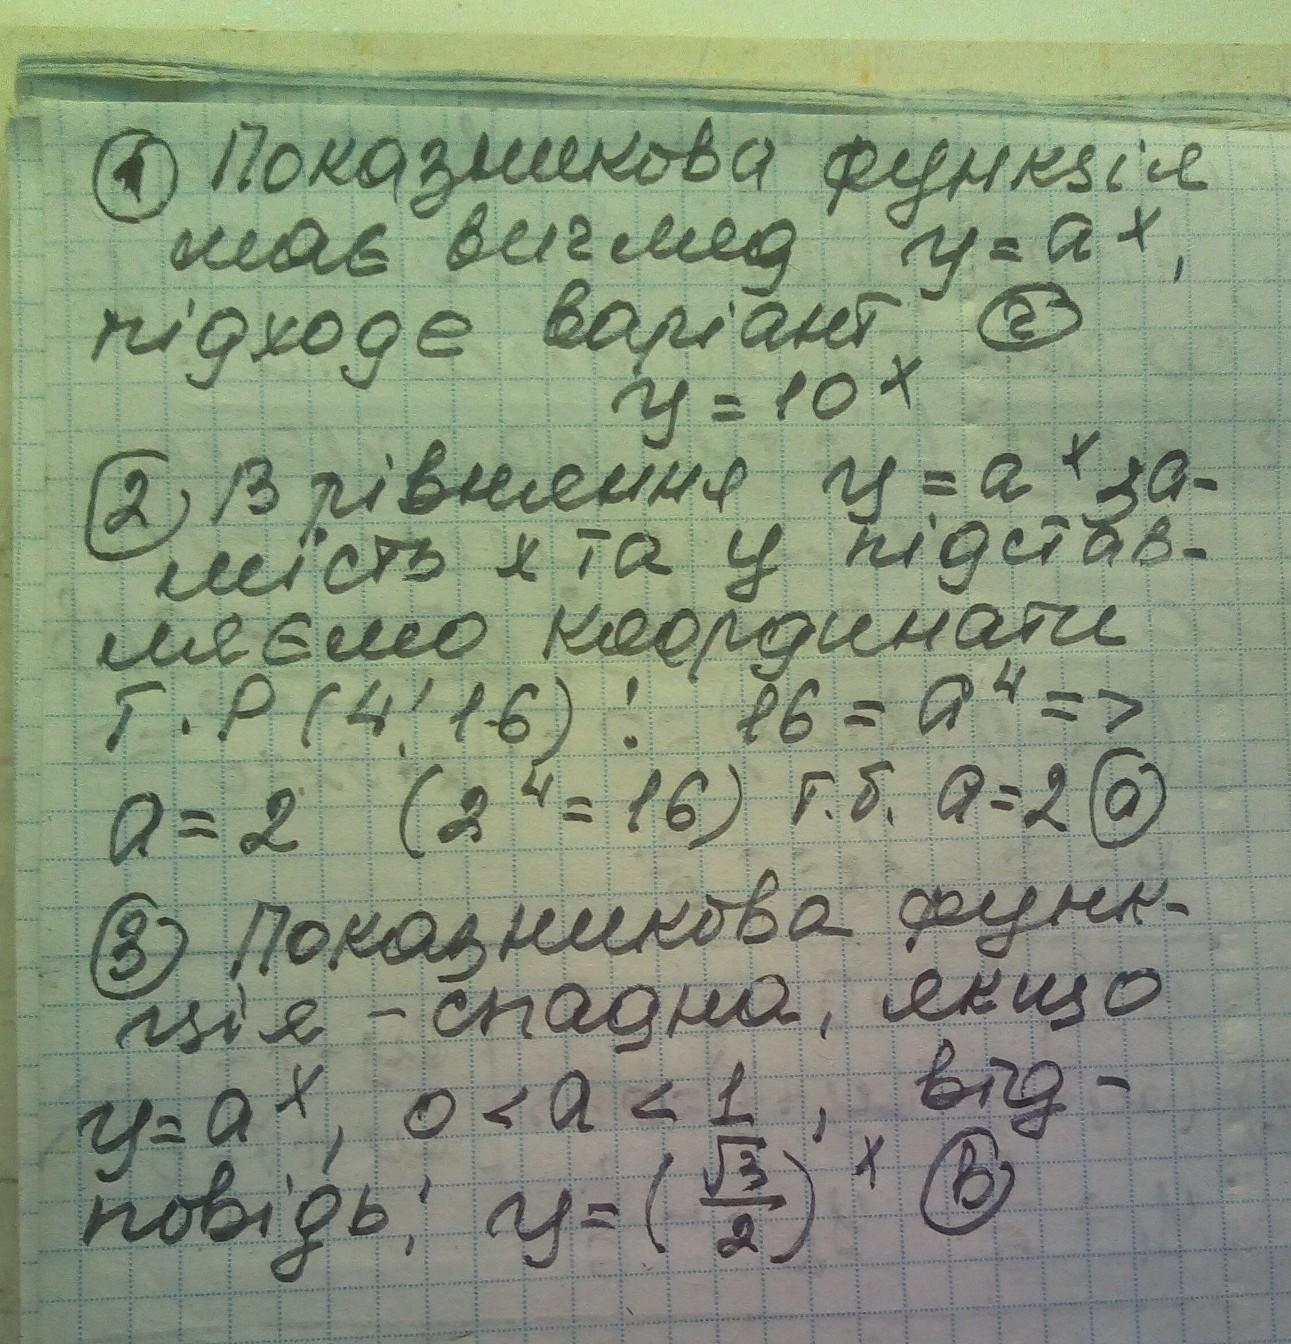 ① Показникова функція
має вигляд y = a^x,
підходе варіант г
y = 10^x
② В рівняння y = a^x за-
мість x та y підстав-
ляємо координати
т. P (4; 16) : 16 = a^4 =>
a = 2 (2^4 = 16) т.б. a = 2 а
③ Показникова функ-
ція - спадна, якщо
y = a^x, 0 < a < 1, від-
повідь: y = (√3/2)^x в